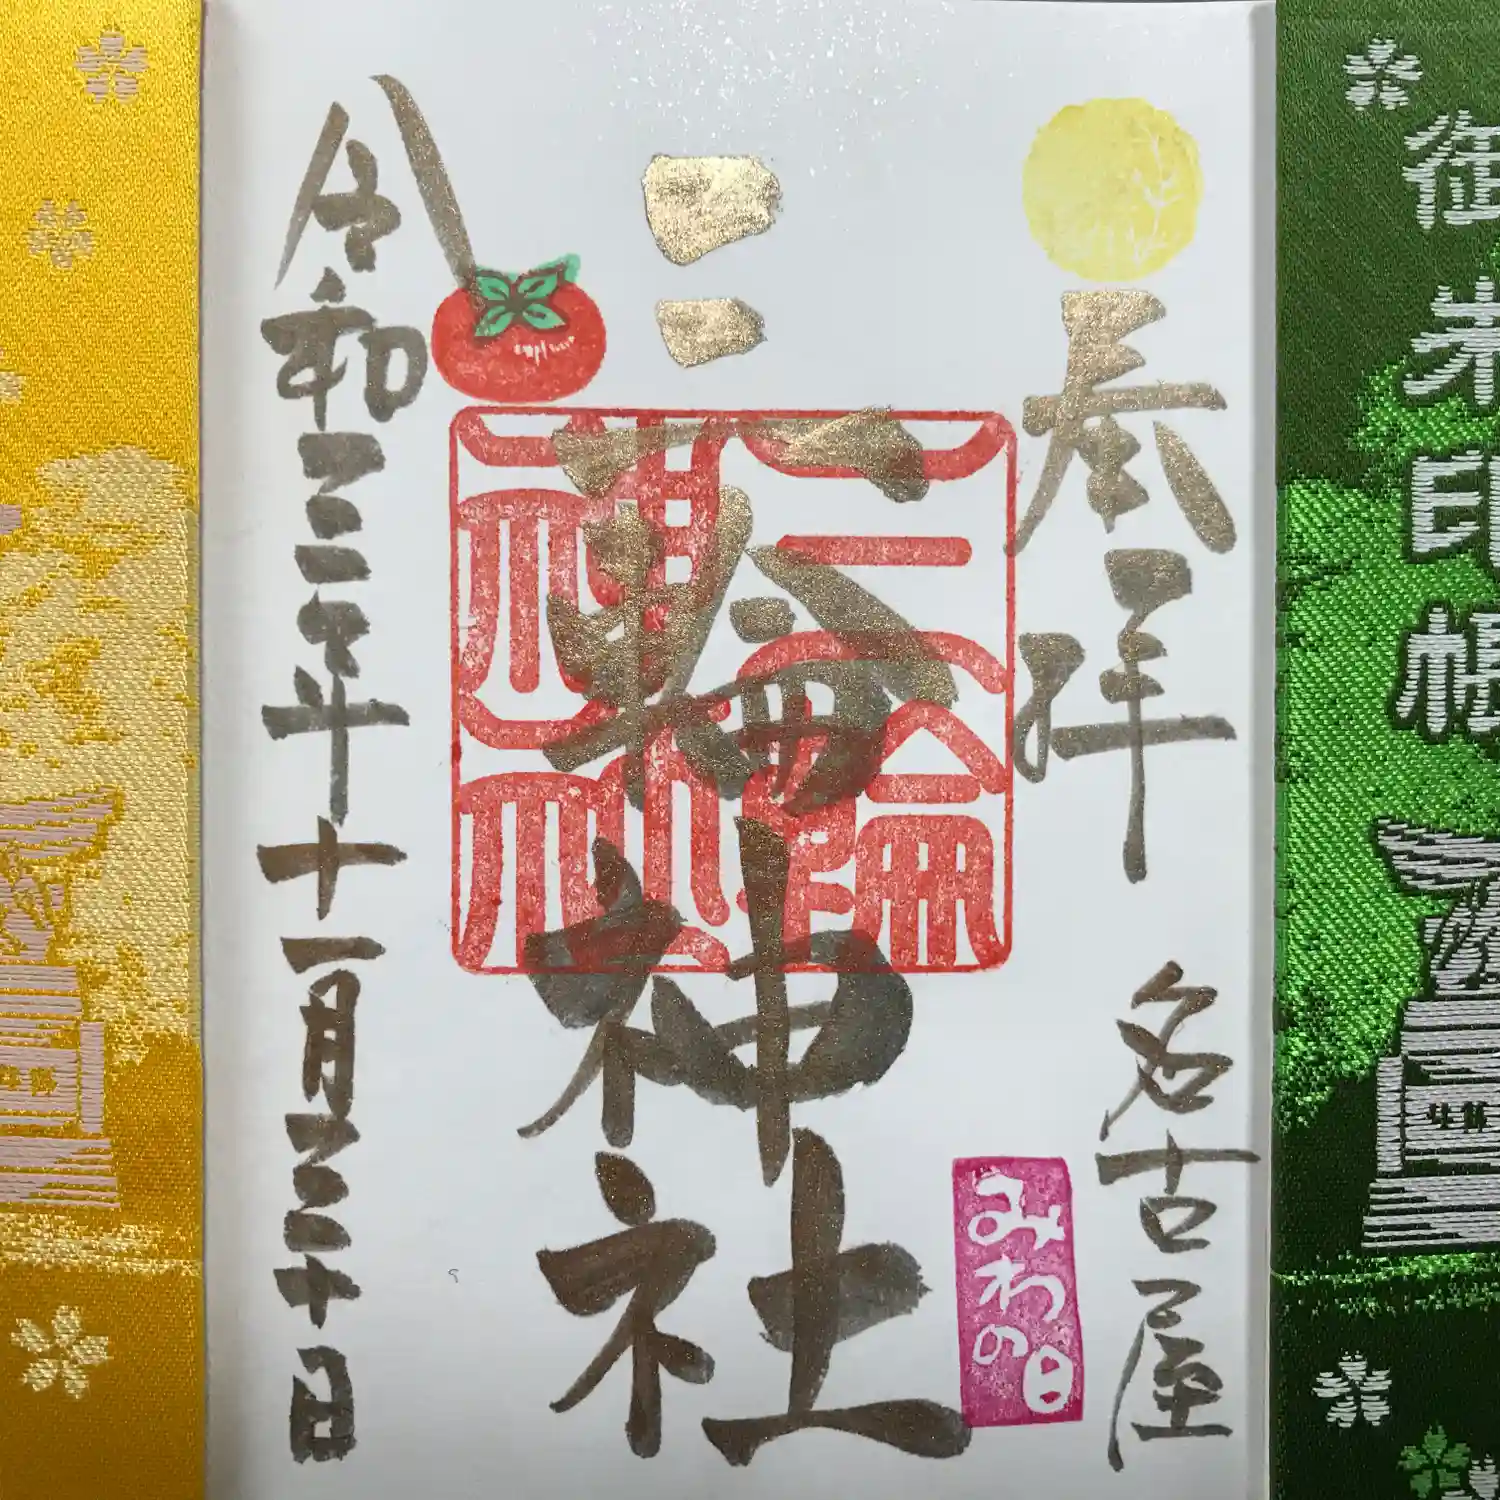 御朱印帳
奉拝
名古屋
みわの日
三輪神社
三輪神社
令和三年十一月三十日